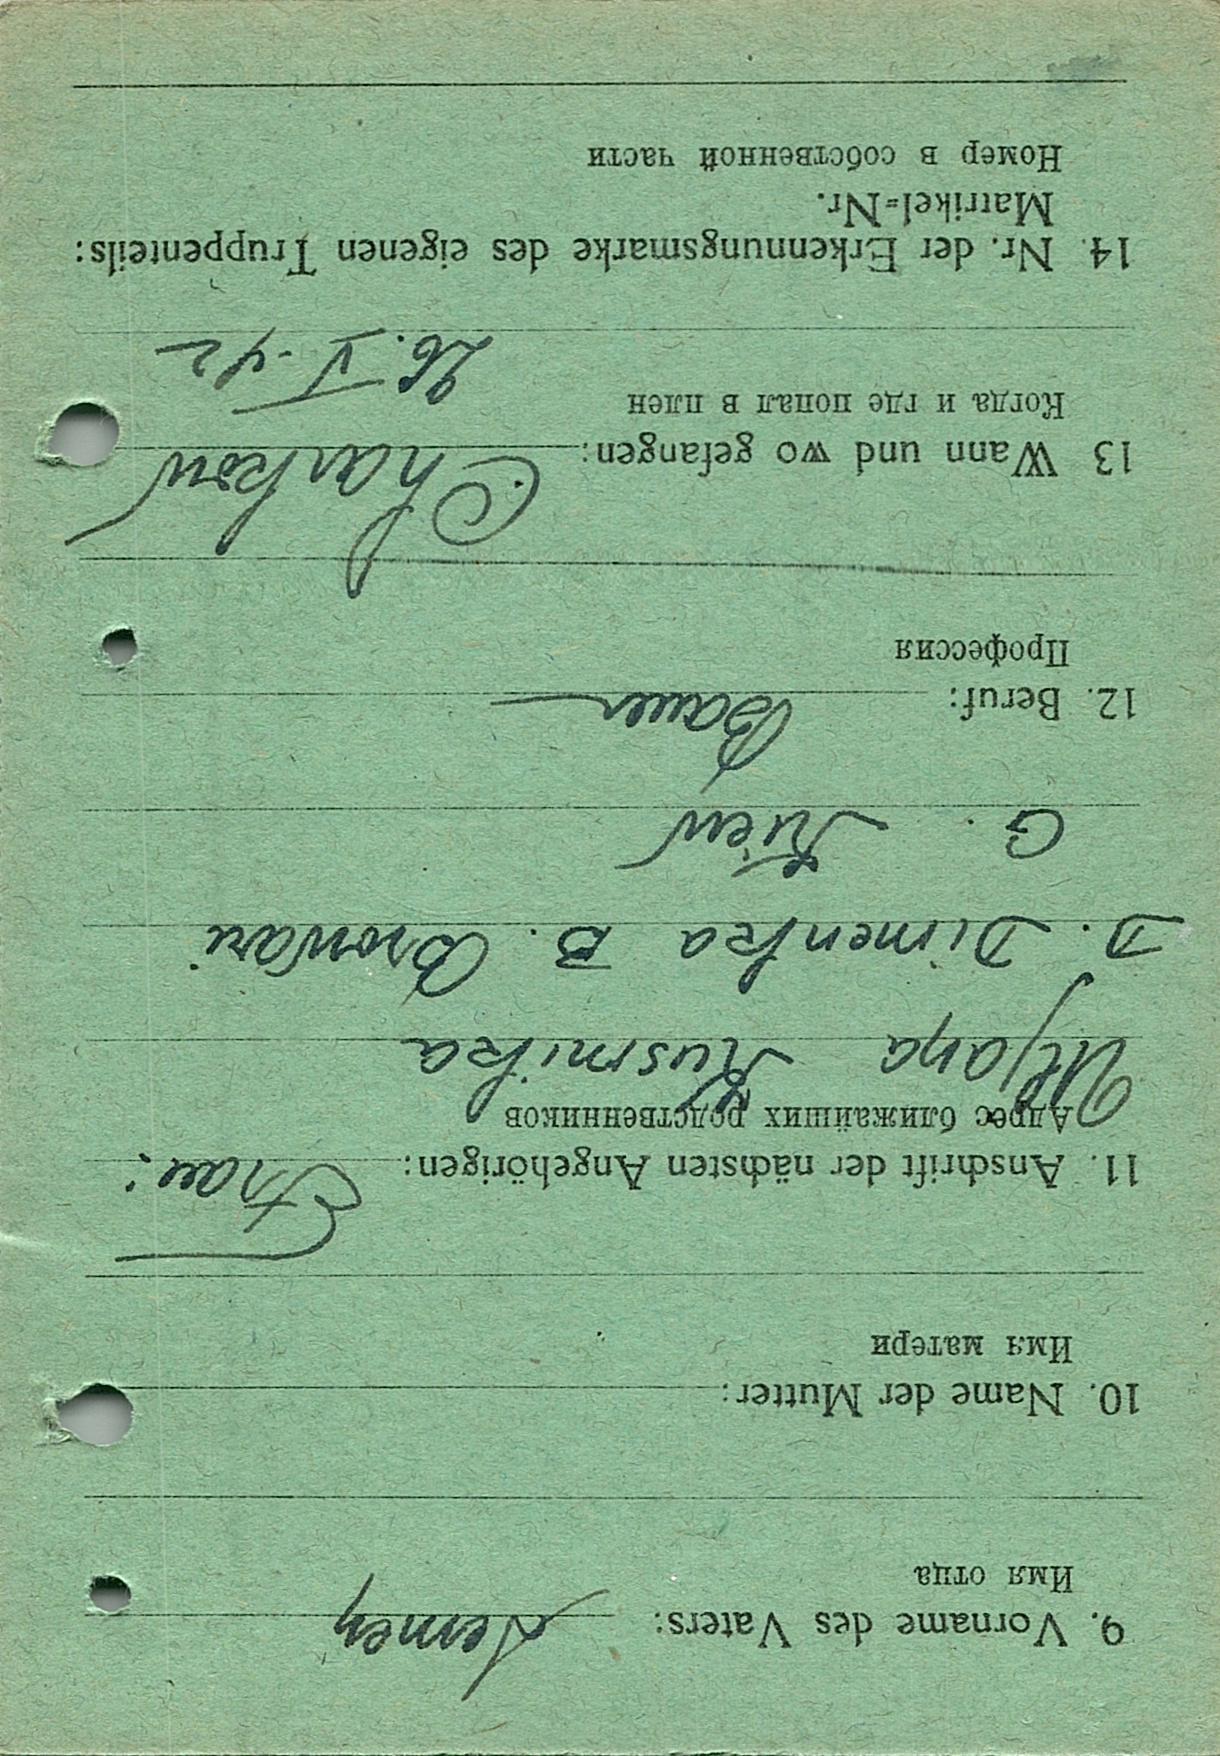 9. Vorname des Vaters: Semen
Имя отца
10. Name der Mutter:
Имя матери
11. Anschrift der nächsten Angehörigen: Frau:
Адрес ближайших родственников
Uljana Kusmika
D. Dimenka B. Browari
G. Kiew
12. Beruf: Bauer
Профессия
13 Wann und wo gefangen: Charkow
Когда и где попал в плен
26. V. 42
14. Nr. der Erkennungsmarke des eigenen Truppenteils:
Matrikel=Nr.
Номер в собственной части